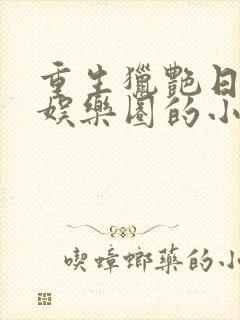 重生獵艷日
娛樂圈的小
喫蟑螂藥的小